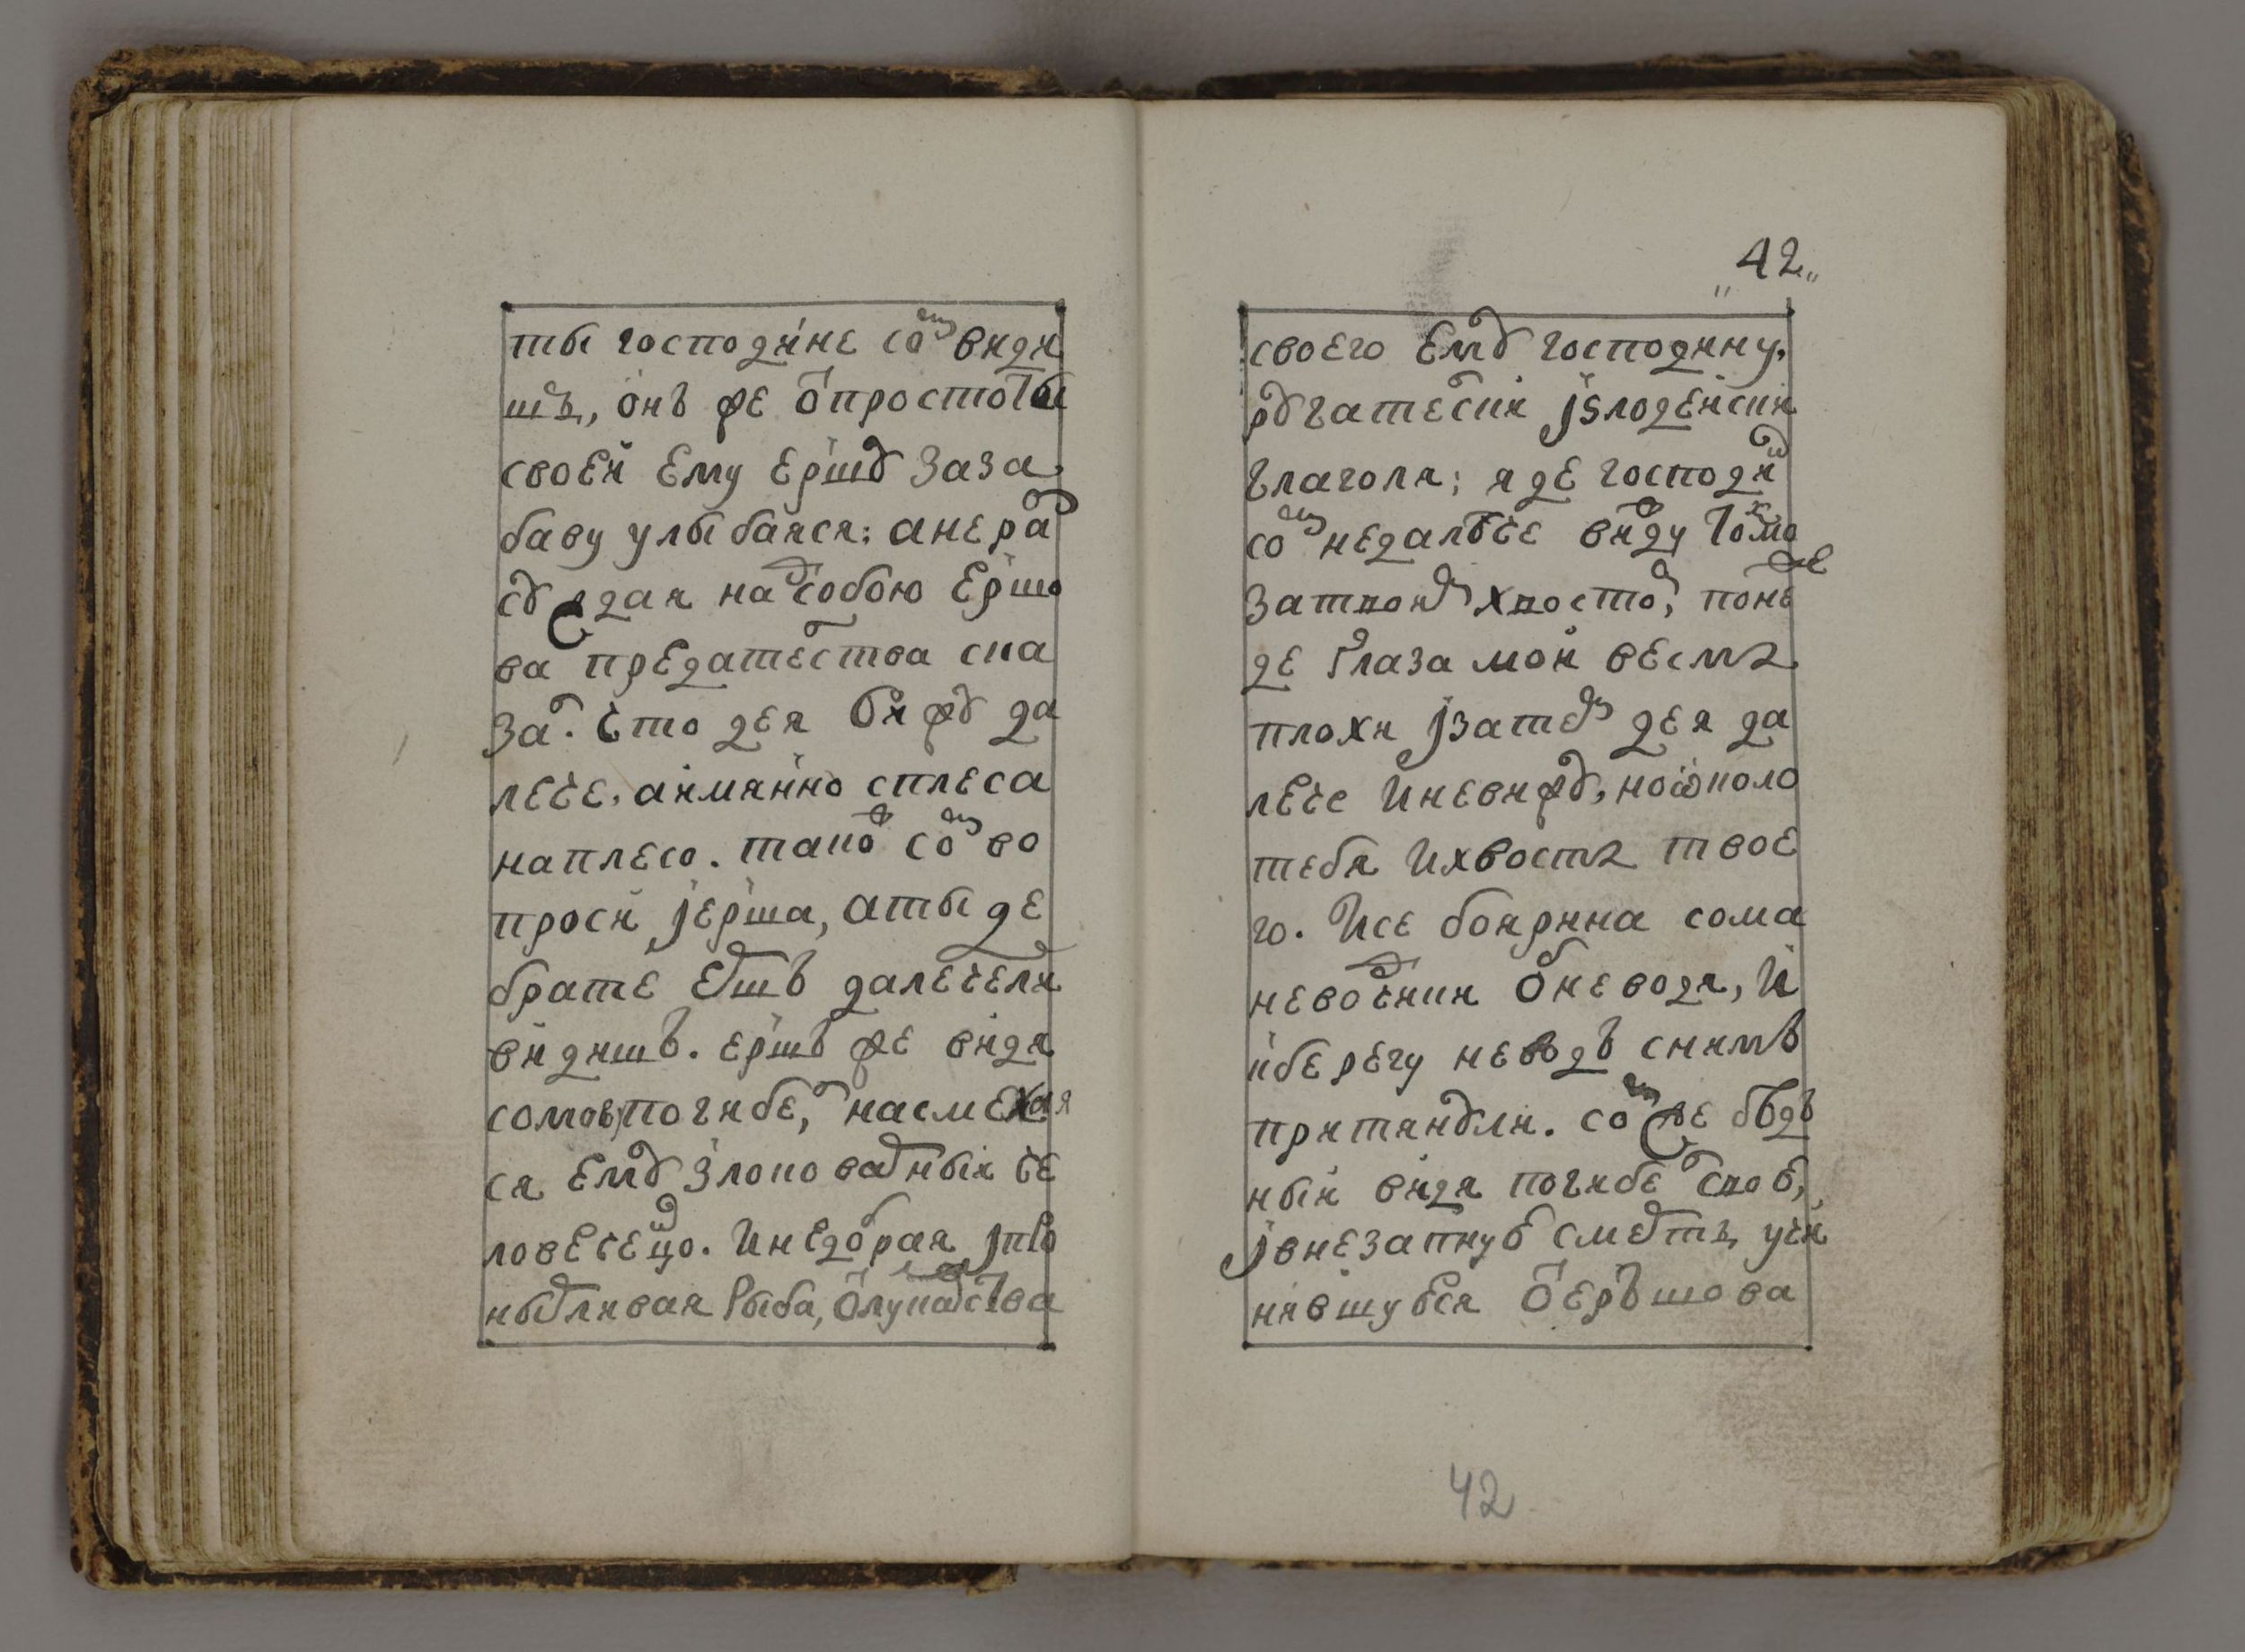 ты господине сомъ види
шъ, онъ же ѿпростоты
своей ему ершу заза
баву улыбаяся: анера
су ждая надсобою ершо
ва предателства ска
зал. что дея вижу да
лече. аимянно сплеса
наплесо. тако ж сомъ во
проси јерша, аты де
брате ершъ далечели
видишъ. ершъ же видя
сомовупогибел, насмехая
ся ему злоковарный че
ловечещо. инедобрая јпро
нырливая рыба, ѿлукавства
"42"
своего ему господину,
ругателски јзлодейски
глаголя; я де господин
сом недалече вижу токмо
затвоим хвостом, понеже
де глаза мои весма
плохи јзатем дея да
лече иневижу, ноѡколо
тебя ихвостъ твое
го. исе боярина сома
неводчики вневоди, и
кберегу неводъ снимъ
притянули. сом же бѣд
ный видя погибел свою,
јвнезапную смерть, учи
нившуюся ѿерьшова
42